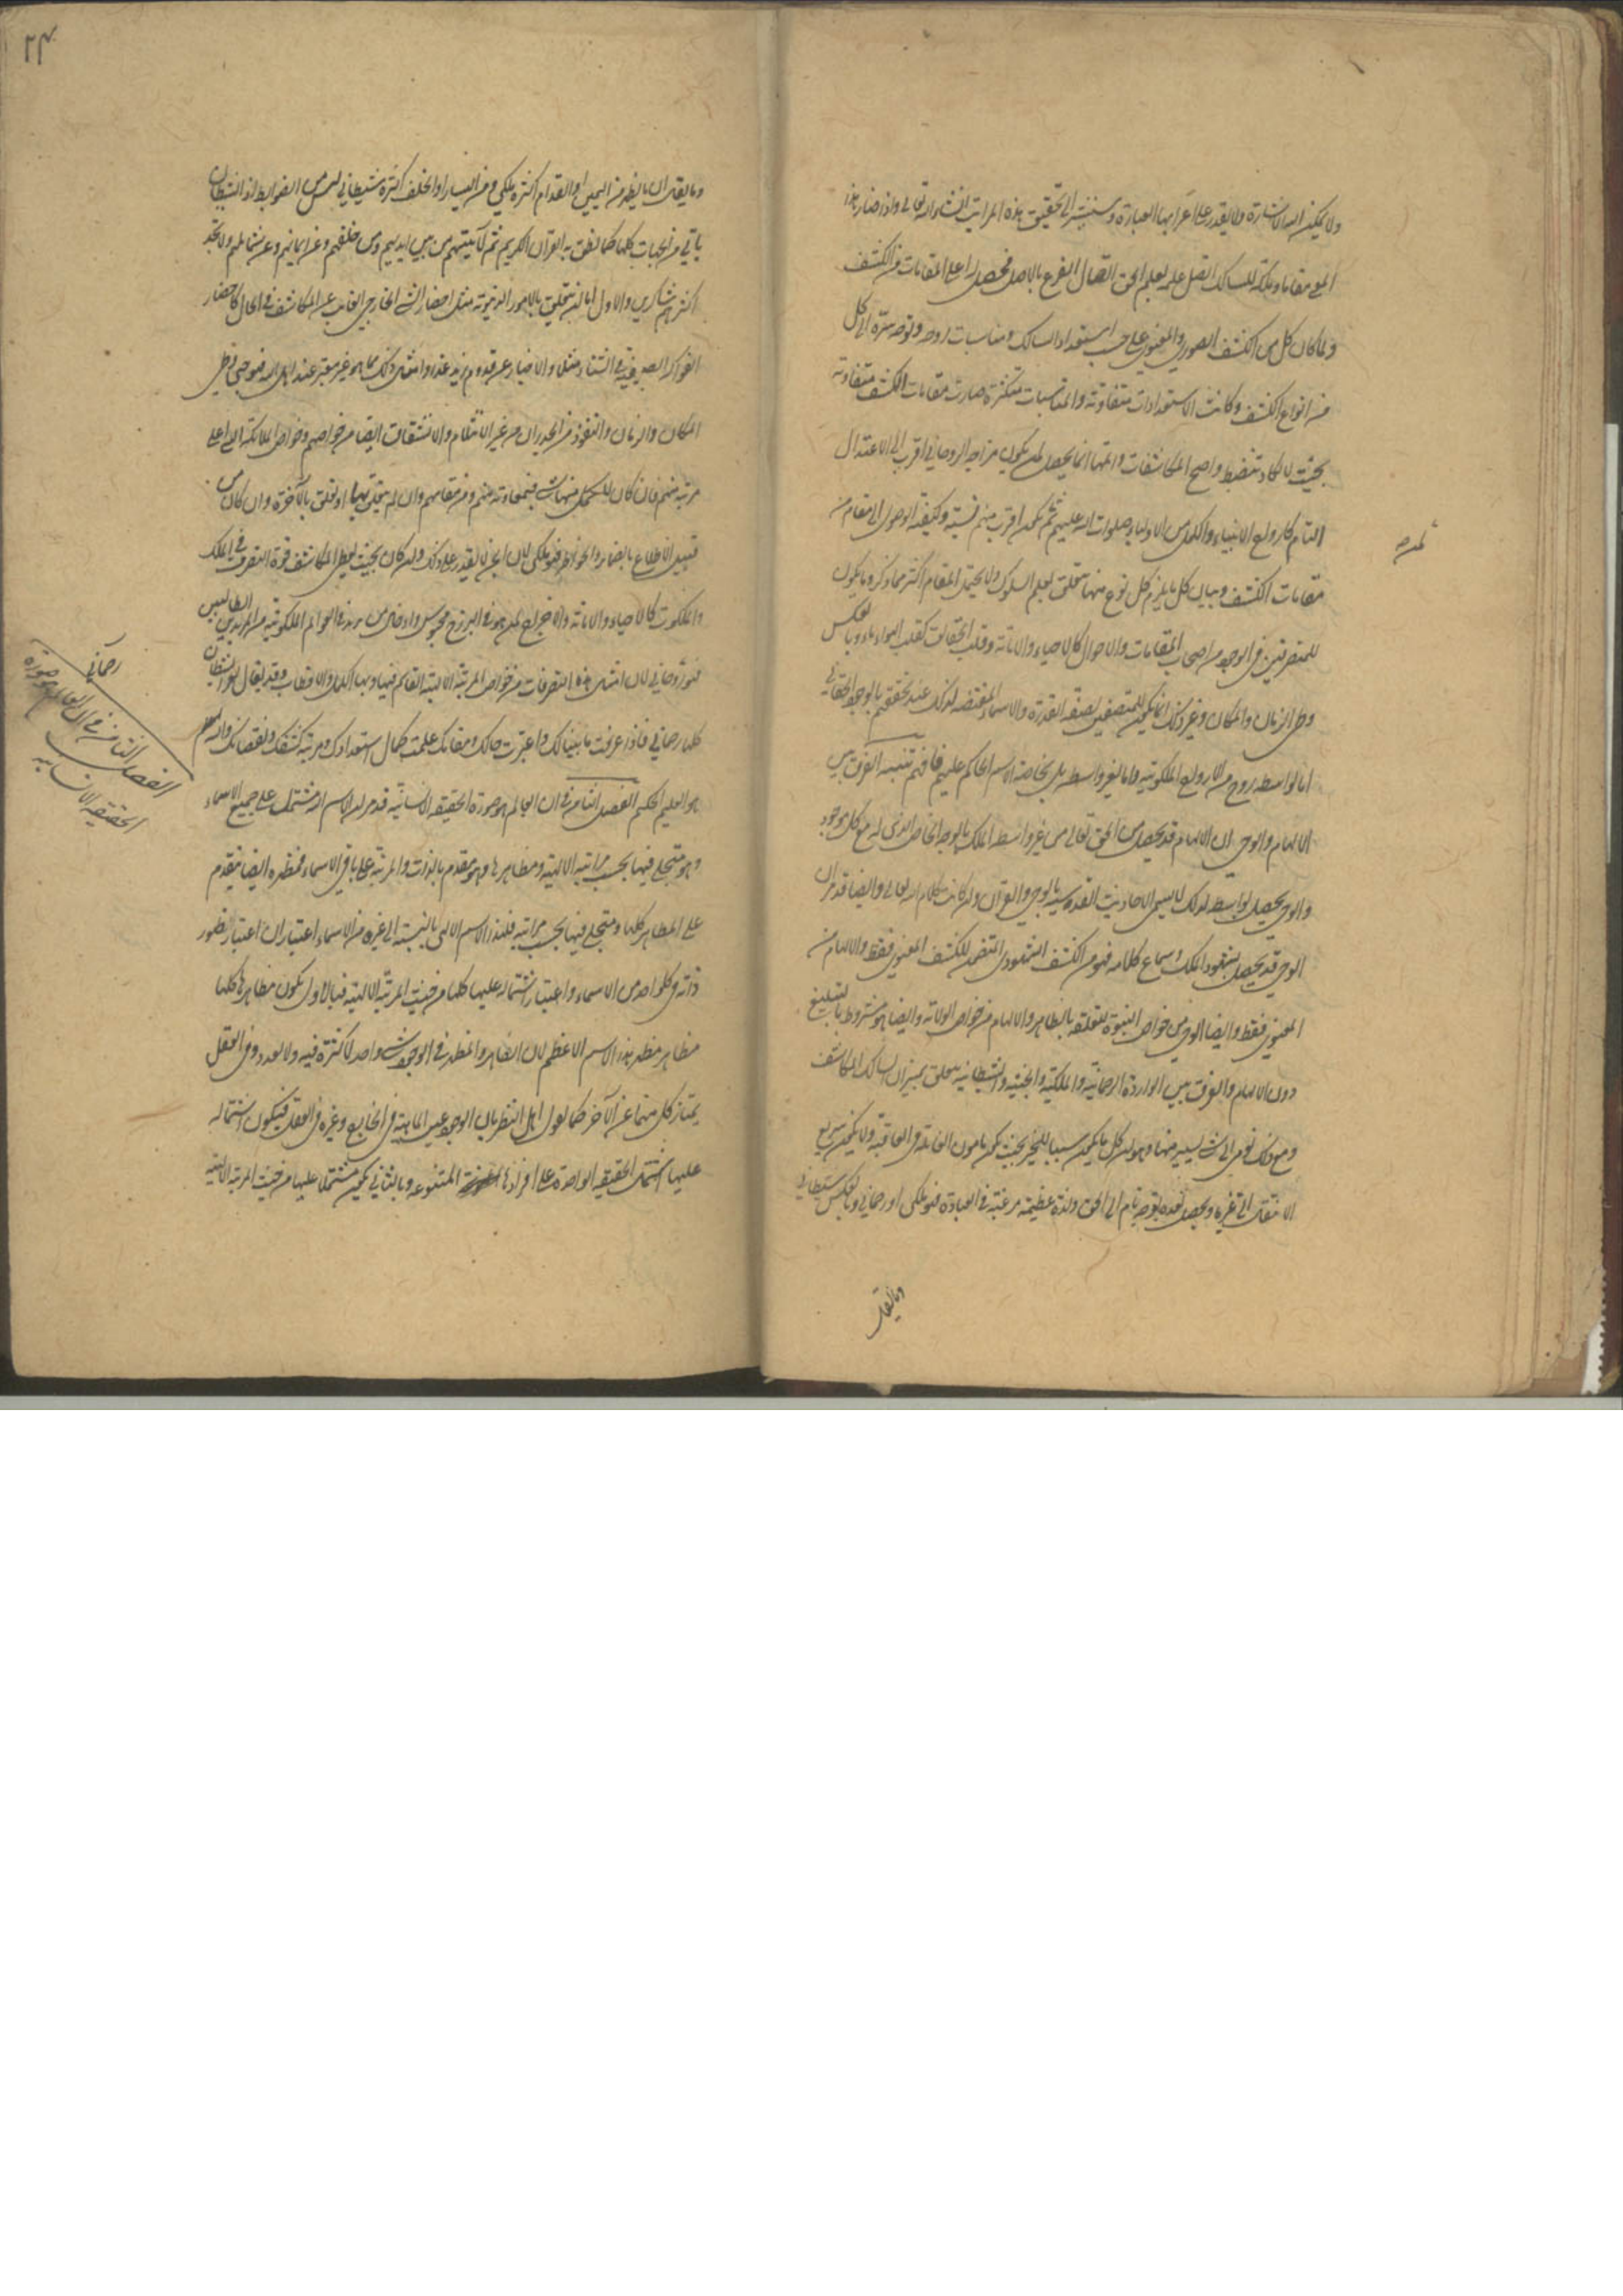 ولا يمكن اليه الاشارة ولا يقدر على اعرابها العبارة وسنشير الى تحقيق هذه المراتب انشاء الله تعالى واذا صار هذا
المعنى مقاما وملكة للسالك اتصل علمه بعلم الحق اتصال الفرع بالاصل فحصل له اعلى المقامات من الكشف
ولما كان كل من الكشف الصوري والمعنوي على حسب استعداد السالك ومناسبات روحه وتوجه سره الى كل
من انواع الكشف وكانت الاستعدادات متفاوتة والمناسبات متكثرة صارت مقامات الكشف متفاوتة
بحيث لا يكاد تنضبط واصح المكاشفات واتمها انما يحصل لمن يكون مزاجه الروحاني اقرب الى الاعتدال
التام كارواح الانبياء والكمل من الاولياء صلوات الله عليهم ثم لمن اقرب منهم نسبة وكيفية الوصول الى مقام من
مقامات الكشف وبيان كل ما يلزم كل نوع منها يتعلق بعلم السلوك ولا يحتمل المقام اكثر مما ذكر وما يكون
للمتصرفين في الوجود من اصحاب المقامات والاحوال كالاحياء والاماتة وقلب الحقائق كقلب الهواء ماء وبالعكس
وطي الزمان والمكان وغير ذلك انما يكون للمتصفين بصفة القدرة والاسماء المقتضية لذلك عند تحققهم بالوجود الحقاني
اما بواسطة روح من الارواح الملكوتية واما بغير واسطة بل بخاصة الاسم الحاكم عليهم فافهم تنبيه الفرق بين
الالهام والوحي ان الالهام قد يحصل من الحق تعالى من غير واسطة الملك بالوجه الخاص الذي له مع كل موجود
والوحي يحصل بواسطة لذلك لا يسمى الاحاديث القدسية بالوحي والقرآن وان كانت كلام الله تعالى وايضا قد مر ان
الوحي قد يحصل بشهود الملك وسماع كلامه فهو من الكشف الشهودي المتضمن للكشف المعنوي فقط والالهام من
المعنوي فقط وايضا الوحي من خواص النبوة لتعلقه بالظاهر والالهام من خواص الولاية وايضا هو مشروط بالتبليغ
دون الالهام والفرق بين الواردة الرحمانية والملكية والجنية والشيطانية يتعلق بميزان السالك المكاشف
ومع ذلك نومي الى شيء يسير منها وهو ان كل ما يكون سببا للخير بحيث يكون مامون الغائلة في العاقبة ولا يكون سريع
الانتقال الى غيره ويحصل بعده توجه تام الى الحق ولذة عظيمة مرغبة في العبادة فهو ملكي او رحماني وبالعكس شيطاني
وما يقال
وما يقال ان ما يظهر من اليمين او القدام اكثره ملكي ومن اليسار او الخلف اكثره شيطاني ليس من الضوابط اذ الشيطان
ياتي من الجهات كلها كما نطق به القرآن الكريم ثم لآتينهم من بين ايديهم ومن خلفهم وعن ايمانهم وعن شمائلهم ولا تجد
اكثرهم شاكرين والاول اما ان يتعلق بالامور الدنيوية مثل احضار الشيء الخارجي الغائب عن المكاشف في الحال كاحضار
الفواكه الصيفية في الشتاء مثلا والاخبار عن قدوم زيد غدا وامثال ذلك مما هو غير معتبر عند اهل الله فهو جني وطي
المكان والزمان والنفوذ من الجدران من غير الانثلام والانشقاق ايضا من خواصهم وخواص الملائكة التي اعلى
مرتبة منهم فان كان للكمل منها شيء فبمعاونة منهم ومن مقامهم وان لم يتعلق بها او تعلق بالآخرة وان كان من
قبيل الاطلاع بالضمائر والخواطر فهو ملكي لان الجن لا يقدر على ذلك وان كان بحيث يعطي المكاشف قوة التصرف في الملك
والملكوت كالاحياء والاماتة والاخراج لمن هو في البرزخ محبوس وادخال من يريد في العوالم الملكوتية من المريدين الطالبين
فهو رحماني لان امثال هذه التصرفات من خواص المرتبة الالهية القائم فيها وبها الكمل والاقطاب وقد يقال لغير الشيطان
كلها رحماني فاذا عرفت ما بينا لك واعتبرت حالك ومقامك علمت كمال استعدادك ومرتبة كشفك ونقصانك والله
هو العليم الحكيم الفصل الثامن في ان العالم هو صورة الحقيقة الانسانية قد مر ان الاسم الله مشتمل على جميع الاسماء
وهو متجلي فيها بحسب مراتبه الالهية ومظاهرها وهو مقدم بالذات والمرتبة على باقي الاسماء فمظهره ايضا مقدم
على المظاهر كلها ومتجلي فيها بحسب مراتبه فلهذا الاسم الالهي بالنسبة الى غيره من الاسماء اعتباران اعتبار ظهور
ذاته في كل واحد من الاسماء واعتبار اشتماله عليها كلها من حيث المرتبة الالهية فبالاول يكون مظاهرها كلها
مظاهر مظهر هذا الاسم الاعظم لان الظاهر والمظهر في الوجود شيء واحد لا كثرة فيه ولا تعدد وفي العقل
يمتاز كل منهما عن الآخر كما يقول اهل النظر بان الوجود عين الماهية في الخارج وغيره في العقل فيكون اشتماله
عليها اشتمال الحقيقة الواحدة على افرادها المتنوعة وبالثاني يكون مشتملا عليها من حيث المرتبة الالهية
رحماني
الفصل الثامن في ان العالم هو صورة
الحقيقة الانسانية